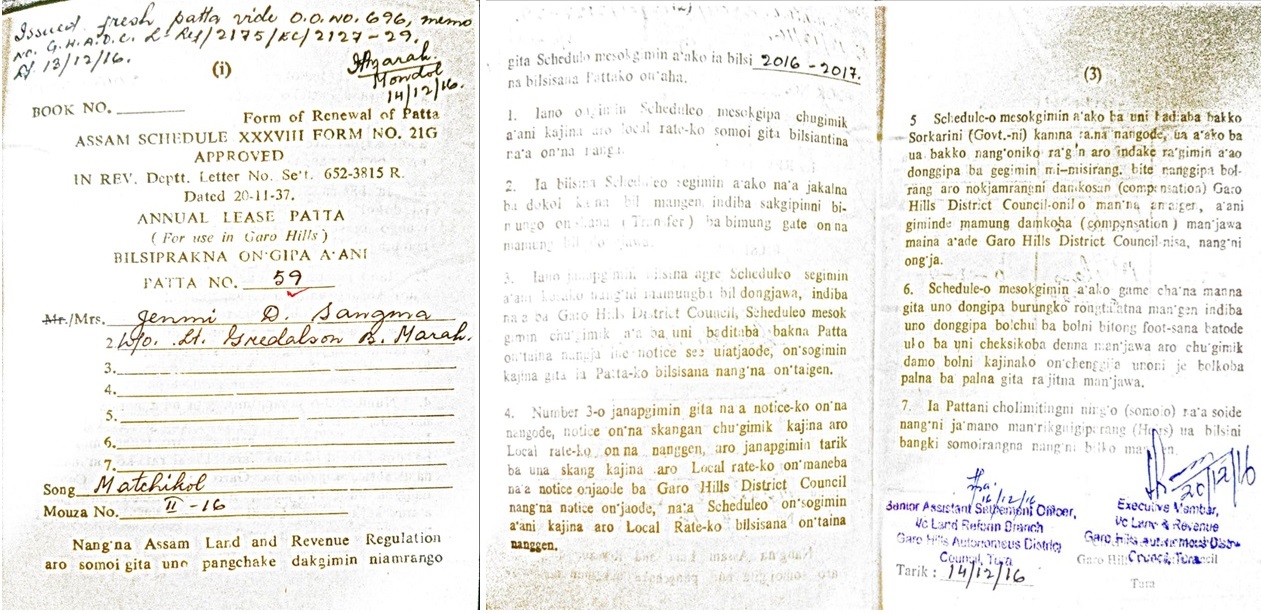 Issued fresh patta vide O.O. NO. 696, memo
no. G.H.A.D.C. Rev/2175/EC/2127-29,
Dt 13/12/16.
Mondol
14/12/16.
(i)
BOOK NO.
Form of Renewal of Patta
ASSAM SCHEDULE XXXVIII FORM NO. 21G
APPROVED
IN REV. Deptt. Letter No. Sett. 652-3815 R.
Dated 20-11-37.
ANNUAL LEASE PATTA
( For use in Garo Hills )
BILSIPRAKNA ON·GIPA A·ANI
PATTA NO. 59
Mr./Mrs. Jenmi D. Sangma
2. W/o. Lt. Gredalson B. Marak.
3.
4.
5.
6.
7.
Song Matchikol
Mouza No. II-16
Nang'na Assam Land and Revenue Regulation
aro somoi gita uno pangchake dakgimin niamrango
gita Schedulo mesokgimin a'ako ia bilsi 2016-2017.
na bilsisana Pattako on'aha.
1. Iano on'gimin Scheduleo mesokgipa chugimik
a'ani kajina aro local rate-ko somoi gita bilsiantina
na'a on'na nanga.
2. Ia bilsina Scheduleo segimin a'ako na'a jakalna
ba dokol kana bil mangen, indiba sakgipinni
on (Transfer) ba bimung gate on'na
mamung bil
3. Iano janapgimin bilsina agre Scheduleo segimin
a'ani nang'ni mamungba bil dongjawa, indiba
na'a ba Garo Hills District Council, Scheduleo mesok
gimin chu'gimik a'a ba uni baditaba bakna Patta
on'taina nangja ine notice see uiatjaode, on'sogimin
kajina gita ia Patta-ko bilsisana nang'na on'taigen.
4. Number 3-o janapgimin gita na'a notice-ko on'na
nangode, notice on'na skangan chu'gimik kajina aro
Local rate-ko on'na nanggen, aro janapgimin tarik
ba una skang kajina aro Local rate-ko on'maneba
na'a notice onjaode ba Garo Hills District Council
nang'na notice on'jaode, na'a Scheduleo on'sogimin
a'ani kajina aro Local Rate-ko bilsisana on'taina
nanggen.
(3)
5 Schedule-o mesokgimin a'ako ba uni badiaba bakko
Sorkarini (Govt.-ni) kamna ra.na nangode, ua a'ako ba
ua bakko nang'oniko ra'gen aro indake ra'gimin a'ao
donggipa ba gegimin mi-misirang, bite nanggipa bol-
rang aro nokjamrangni damkosan (compensation) Garo
Hills District Council-onilo man'na amaigen, a'ani
giminde mamung damkoha (compensation) man'jawa
maina a'ade Garo Hills District Council-nisa, nang'ni
ong'ja.
6. Schedule-o mesokgimin a'ako game cha'na manna
gita uno dongipa burungko rongtatatna man'gen indiba
uno donggipa bolchu ba bolni bitong foot-sana batode
uko ba uni cheksikoba denna man'jawa aro chu'gimik
damo bolni kajinako on'chenggija unoni je bolkoba
palna ba palna gita rajitna man'jawa.
7. Ia Pattani cholimitingni ning'o (somoio) na'a soide
nang'ni ja'mano man'rikgnigiparang (Heirs) ua bilsini
bangki somoirangna nang'ni bilko mangen.
16/12/16
Senior Assistant Settlement Officer,
I/c Land Reform Branch
Garo Hills Autonomous District
Council, Tura
Tarik : 14/12/16
20/12/16
Executive Member,
I/c Land & Revenue
Garo Hills Autonomous Distr
Council, Tura
Tura